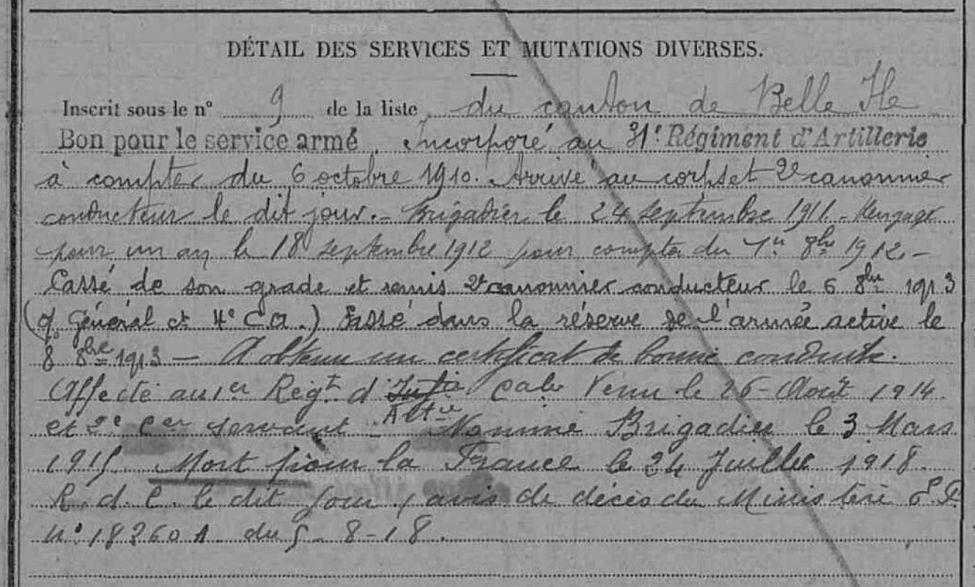 DÉTAIL DES SERVICES ET MUTATIONS DIVERSES.
Inscrit sous le n° 9 de la liste du canton de Belle Ile
Bon pour le service armé. Incorporé au 31e Régiment d'Artillerie
à compter du 6 octobre 1910. Arrivé au corps et 2e canonnier
conducteur le dit jour. - Brigadier le 24 septembre 1911 - Rengagé
pour un an le 18 septembre 1912 pour compter du 1er 8bre 1912. -
Cassé de son grade et remis 2e canonnier conducteur le 6 8bre 1913
(Général Ct 4e CA.) Passé dans la réserve de l'armée active le
8 8bre 1913 - A obtenu un certificat de bonne conduite.
Affecté au 1er Regt. d' Artie Cale Venu le 26 Août 1914
et 2e Cer servant - Nommé Brigadier le 3 Mars
1915. Mort pour la France le 24 Juillet 1918.
R. d. C. le dit jour, avis de décès du Ministère
n° 18260 A du 5-8-18.